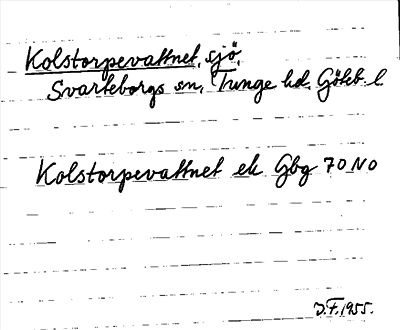 Kolstorpevattnet, sjö,
Svarteborgs sn, Tunge hd. Göteb. l.
Kolstorpevattnet ek Gbg 70 NO
J.F. 1955.